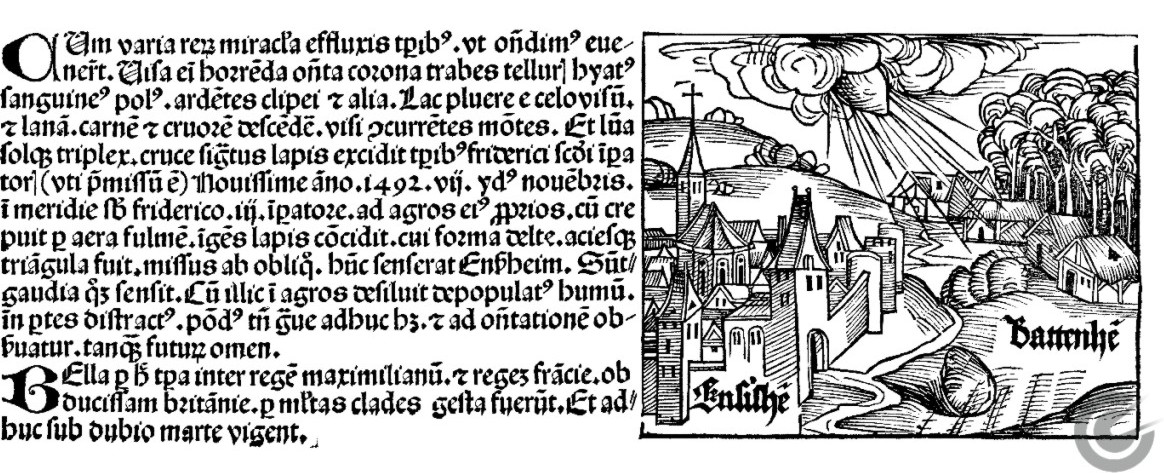 CUm varia reꝝ miracl'a effluxis tꝑibꝰ. vt oñdimꝰ eue-
ner̃t. Uisa ei᷑ horrẽda oñta corona trabes tellurꝭ hyatꝰ
sanguineꝰ polꝰ. ardẽtes clipei ⁊ alia. Lac pluere e celo visũ.
⁊ lanã. carnẽ ⁊ cruorẽ descẽdẽ. visi ↄcurrẽtes mõtes. Et lũa
solqꝫ triplex. cruce sig̃tus lapis excidit tꝑibꝰ friderici scd̃i ĩpa
torꝭ (vti p̃missũ ẽ) Nouissime ãno. 1492. vij. ydꝰ nouẽbris.
ĩ meridie sb̃ friderico. iij. ĩꝑatore. ad agros eiꝰ ꝓprios. cũ cre
puit ꝑ aera fulmẽ. ĩgẽs lapis cõcidit. cui forma delte. aciesqꝫ
triãgula fuit. missus ab obliq̊. hũc senserat Ensheim. Sũt-
gaudia qꝫ sensit. Cũ illic ĩ agros desiluit depopulatꝰ humũ.
ĩn ꝑtes distractꝰ. põdꝰ tñ g̃ue adhuc hꝫ. ⁊ ad oñtationẽ ob-
ẜuatur. tanqꝫ̃ futuꝝ omen.
BElla ꝑ h̃ tꝑa inter regẽ maximilianũ. ⁊ regeꝫ frãcie. ob
ducissam britãnie. ꝑ ml'tas clades gesta fuerũt. Et ad-
huc sub dubio marte vigent.
Battenhẽ
Ensishẽ